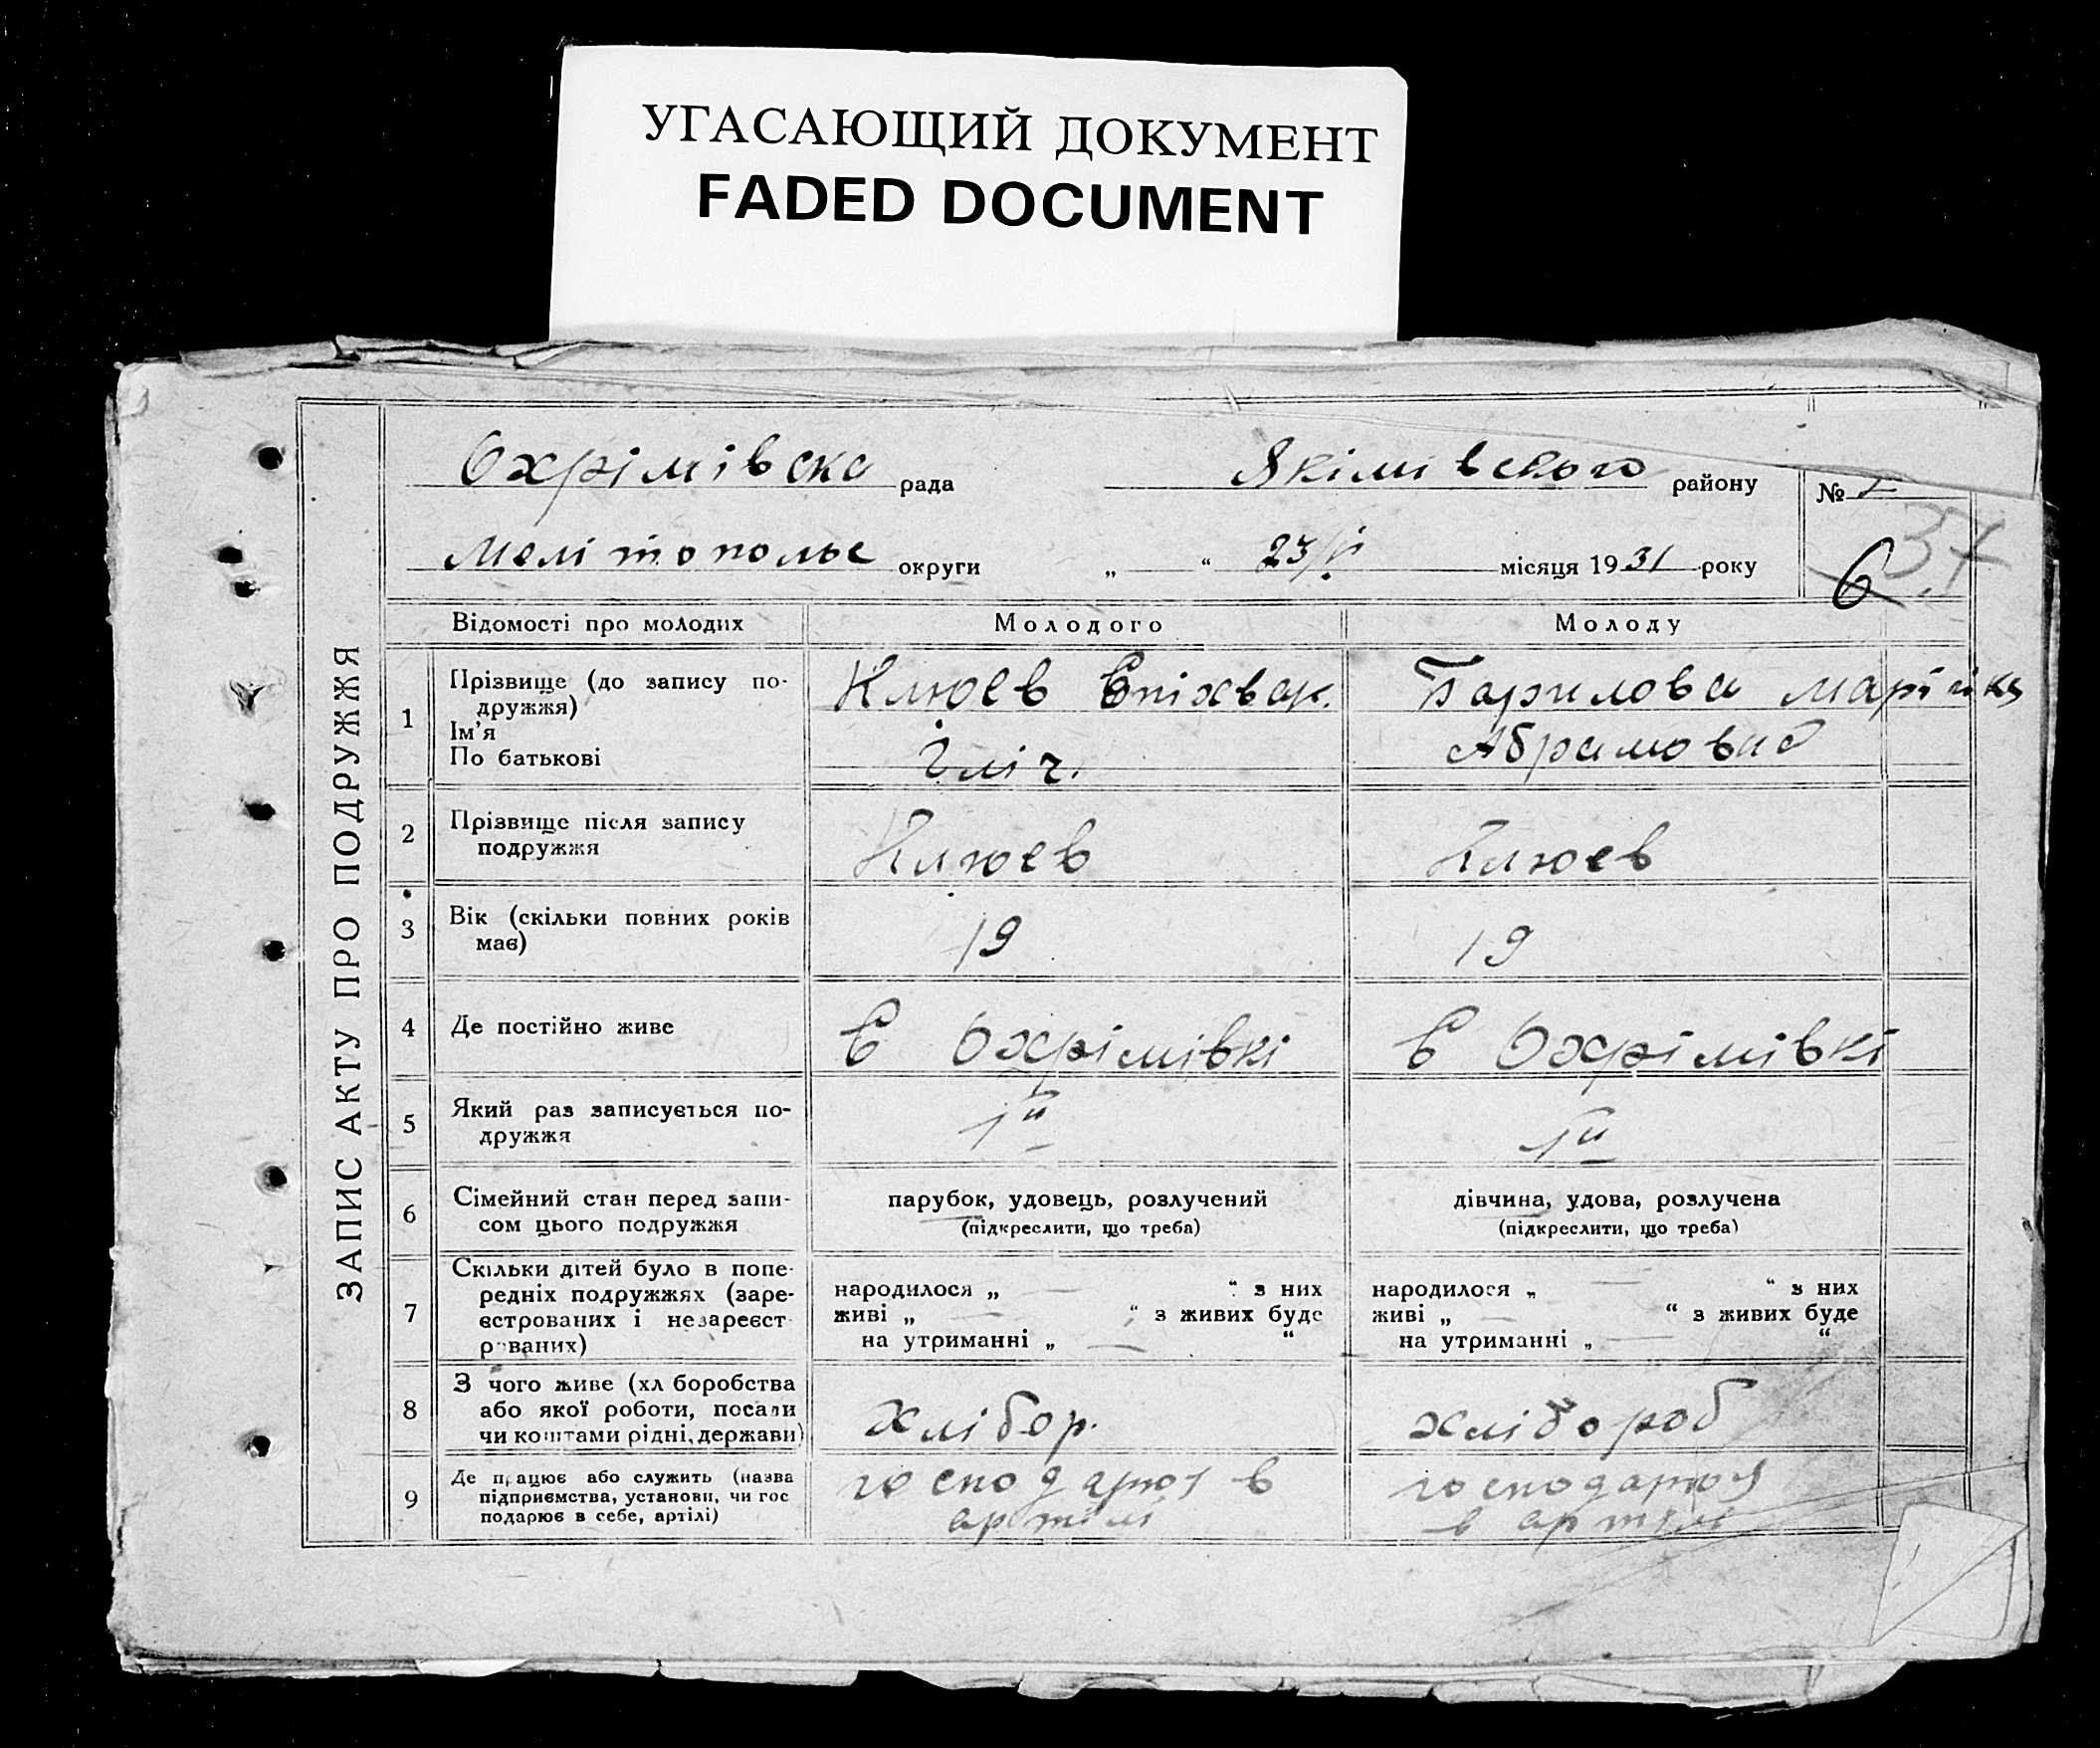 УГАСАЮЩИЙ ДОКУМЕНТ
FADED DOCUMENT
ЗАПИС АКТУ ПРО ПОДРУЖЖЯ
Охрімівска рада Якімівского району №
Мелітополье округи „ “ 23/ місяця 1931 року
6 37
Відомості про молодих Молодого Молоду
1 Прізвище (до запису по-
дружжя)
Ім'я
По батькові
Клюев Епіхвар.
Іліч.
Барилова Марійка
Абрамовна
2 Прізвище після запису
подружжя
Клюев Клюев
3 Вік (скільки повних років
має)
19 19
4 Де постійно живе
в Охрімівкі в Охрімівкі
5 Який раз записується по-
дружжя
1й 1й
6 Сімейний стан перед запи-
сом цього подружжя
парубок, удовець, розлучений
(підкреслити, що треба)
дівчина, удова, розлучена
(підкреслити, що треба)
7 Скільки дітей було в попе-
редніх подружжях (заре-
єстрованих і незареєст
рованих)
народилося „ — “ з них
живі „ — “ з живих буде
на утриманні „ — “
народилося „ — “ з них
живі „ — “ з живих буде
на утриманні „ — “
8 З чого живе (хл боробства
або якої роботи, посади
чи коштами рідні, держави)
хлібор. хлібороб
9 Де працює або служить (назва
підприємства, установи, чи гос
подарює в себе, артілі)
господарює в
артілі
господарює
в артілі